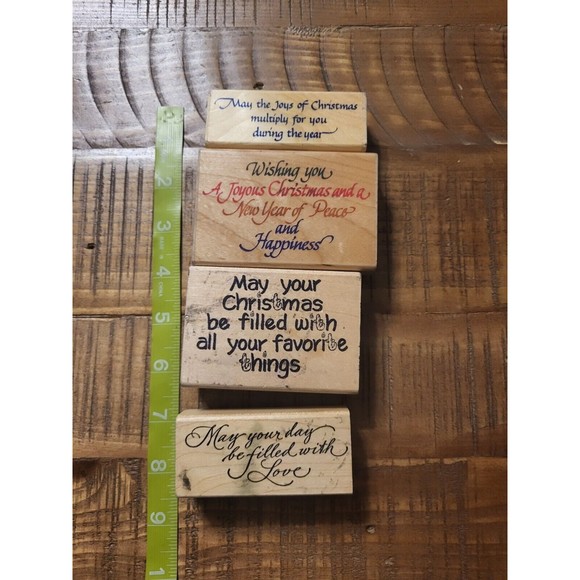 May the Joys of Christmas
multiply for you
during the year
Wishing you
A Joyous Christmas and a
New Year of Peace
and
Happiness
May your
Christmas
be filled with
all your favorite
things
May your day
be filled with
Love
2
3
4
5
6
7
8
9